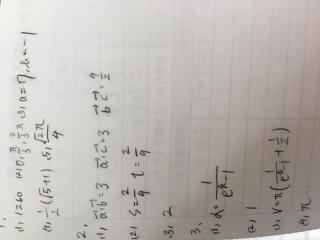 1.
(1) 1260 (2) 0, π/3, 2/3π (3) a=7, b=-1
(4) 1/2(√5+1) (5) √2π/4
2.
(1) a⃗·b⃗=3 a⃗·c⃗=3 b⃗·c⃗=9/2
(2) s=2/9 t=2/9
(3) 2
3.
(1) α=1/(e^k-1)
(2) 1
(3) V=π(1/(e^k-1)+1/2)
(4) π